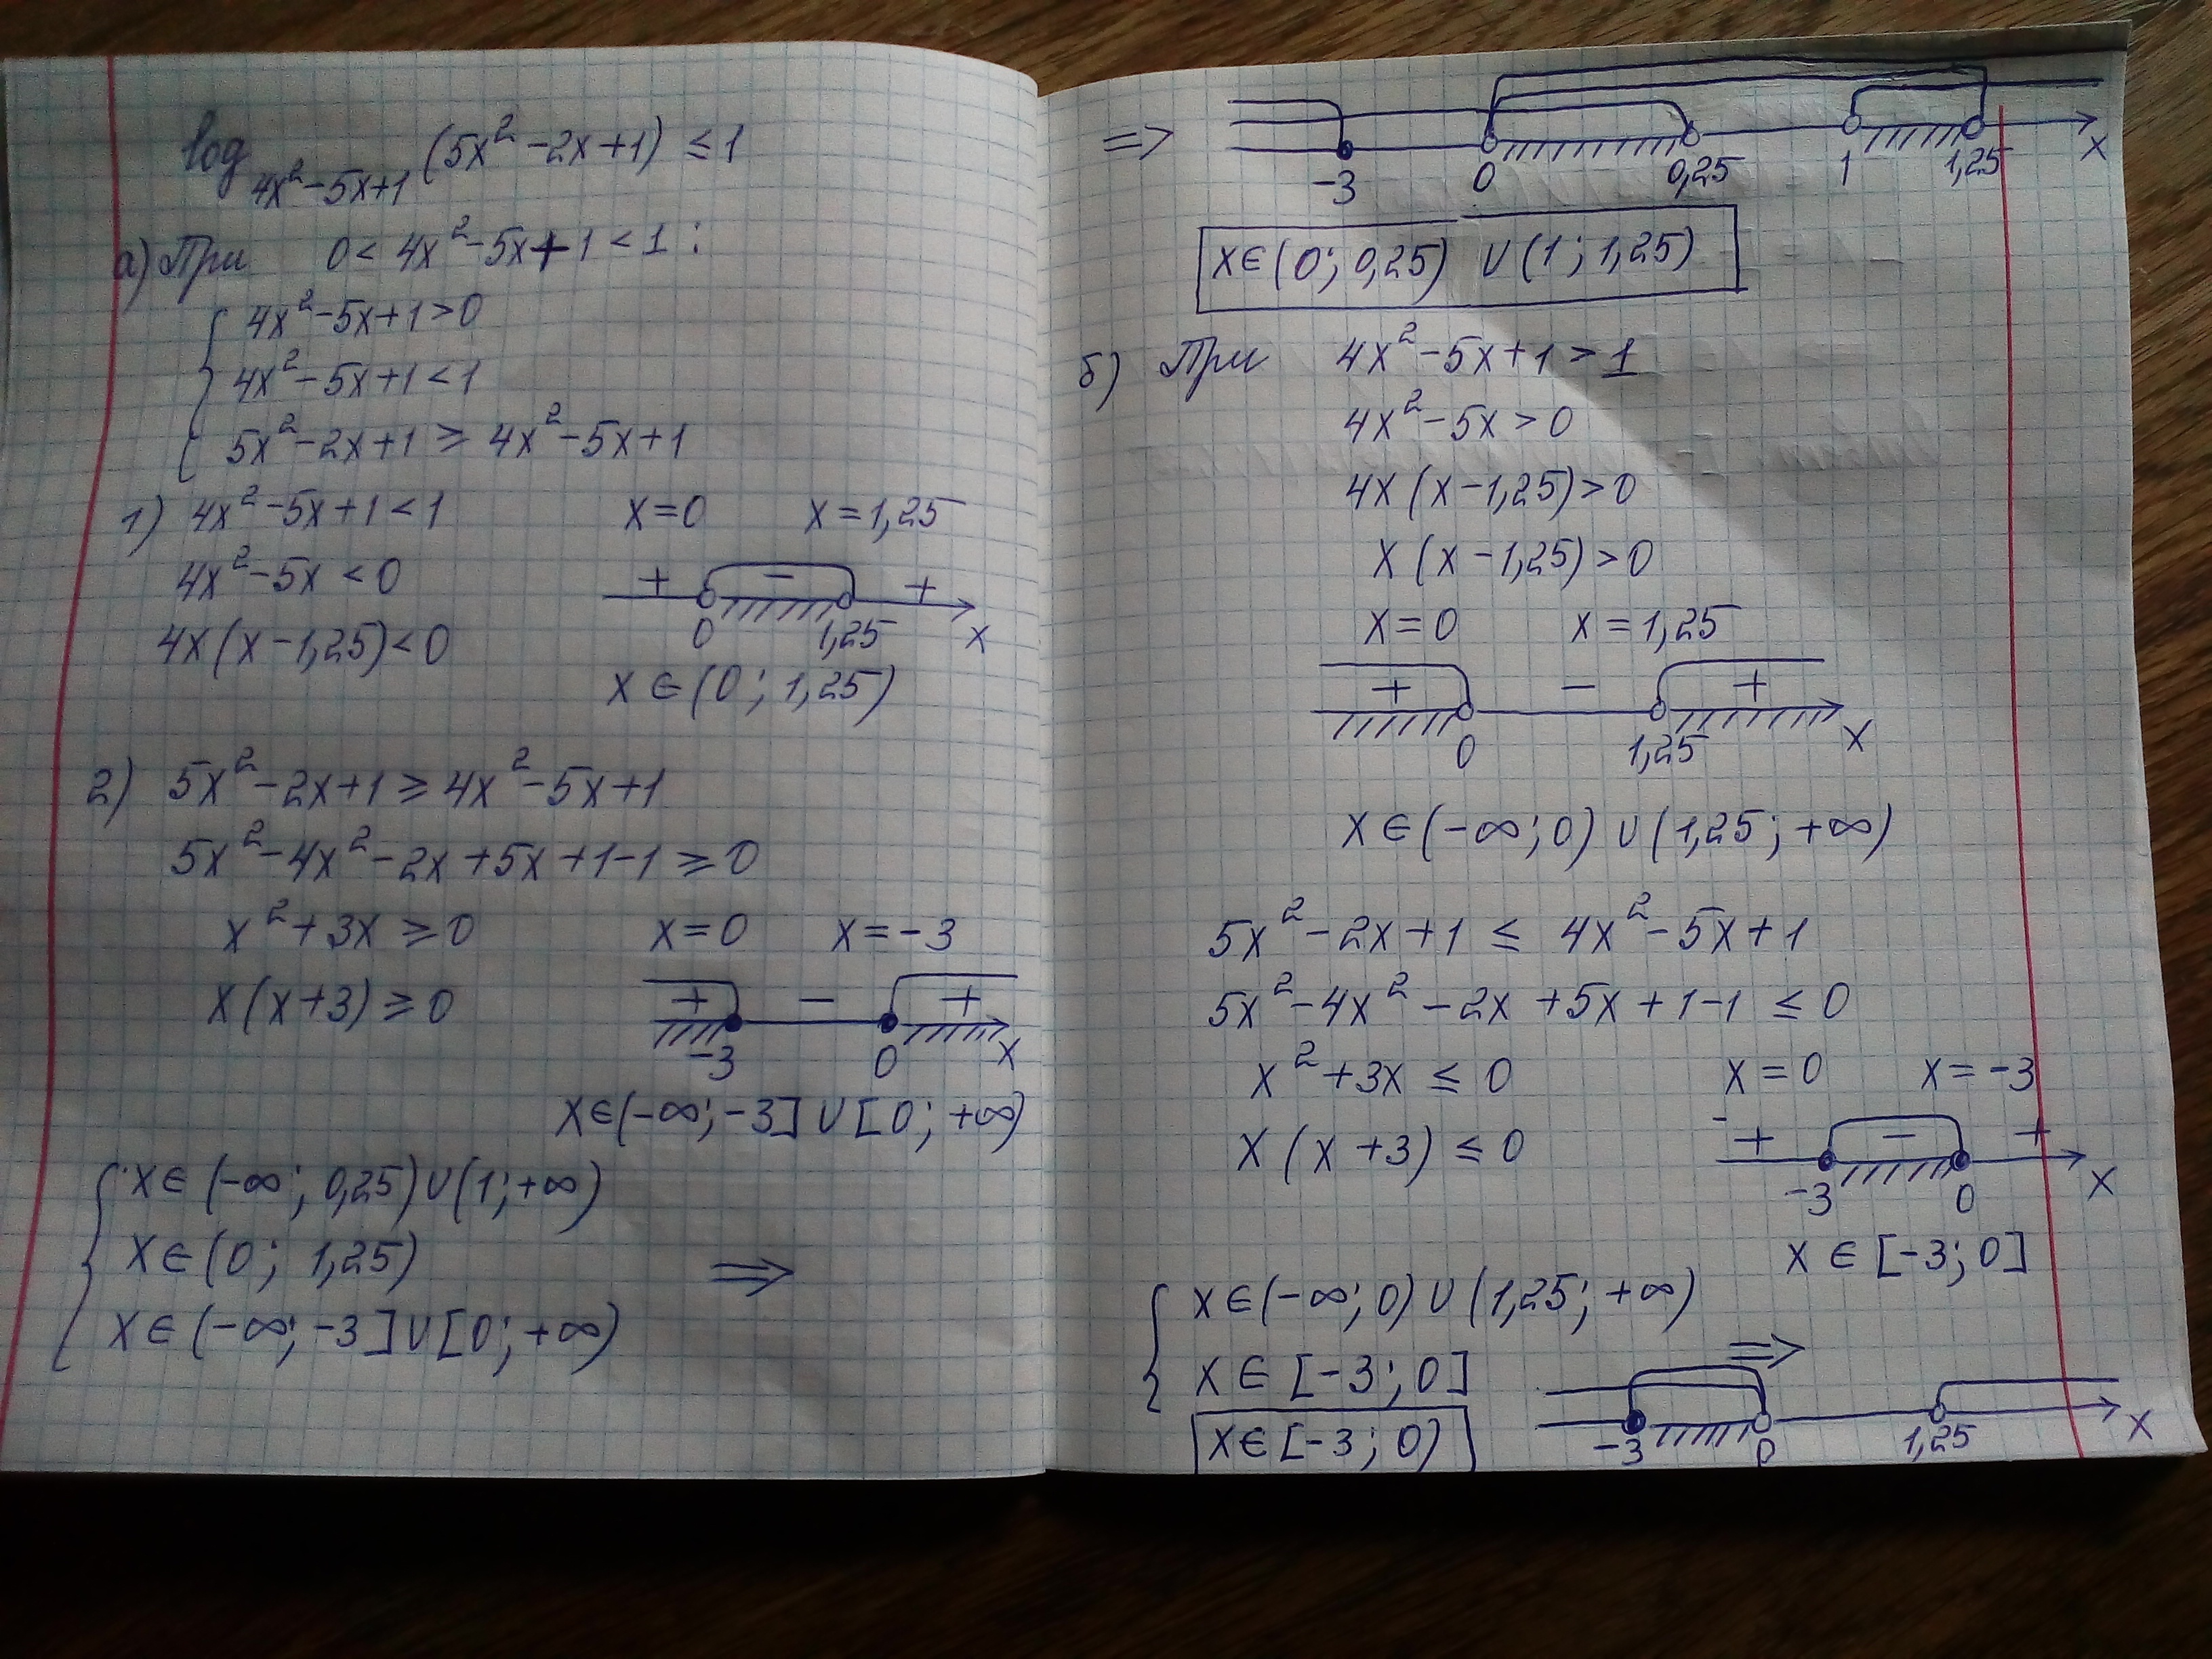 log₄ₓ²₋₅ₓ₊₁ (5x² -2x+1) ≤ 1
а) При 0 < 4x² -5x+1 < 1 :
4x² -5x+1 > 0
4x² -5x+1 < 1
5x² -2x+1 ≥ 4x² -5x+1
1) 4x² -5x+1 < 1 x=0 x=1,25
4x² -5x < 0
+ - +
0 1,25 x
4x(x-1,25) < 0
x ∈ (0; 1,25)
2) 5x² -2x+1 ≥ 4x² -5x+1
5x² -4x² -2x+5x+1-1 ≥ 0
x² +3x ≥ 0 x=0 x=-3
x(x+3) ≥ 0
+ - +
-3 0 x
x∈(-∞;-3] ∪ [0; +∞)
x∈ (-∞; 0,25) ∪ (1;+∞)
x∈ (0; 1,25) ⟹
x∈ (-∞; -3] ∪ [0; +∞)
⟹ -3 0 0,25 1 1,25 x
x∈(0; 0,25) ∪ (1; 1,25)
б) При 4x² -5x+1 > 1
4x² -5x > 0
4x (x-1,25) > 0
x (x-1,25) > 0
x=0 x=1,25
+ - +
0 1,25 x
x∈(-∞;0) ∪ (1,25; +∞)
5x² -2x+1 ≤ 4x² -5x+1
5x² -4x² -2x +5x+1-1 ≤ 0
x² +3x ≤ 0 x=0 x=-3
x (x+3) ≤ 0
+ - +
-3 0 x
x ∈ [-3; 0]
x∈(-∞; 0) ∪ (1,25; +∞)
x∈ [-3; 0] ⟹
-3 0 1,25 x
x∈ [-3; 0)